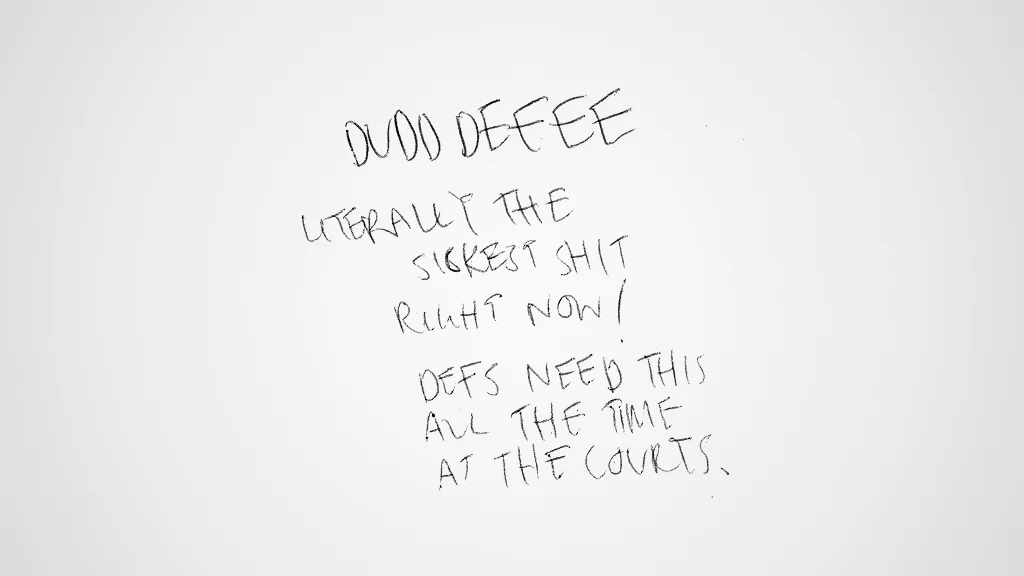 DUDD DEEEE
LITERALLY THE
SICKEST SHIT
RIGHT NOW!
DEFS NEED THIS
ALL THE TIME
AT THE COURTS.